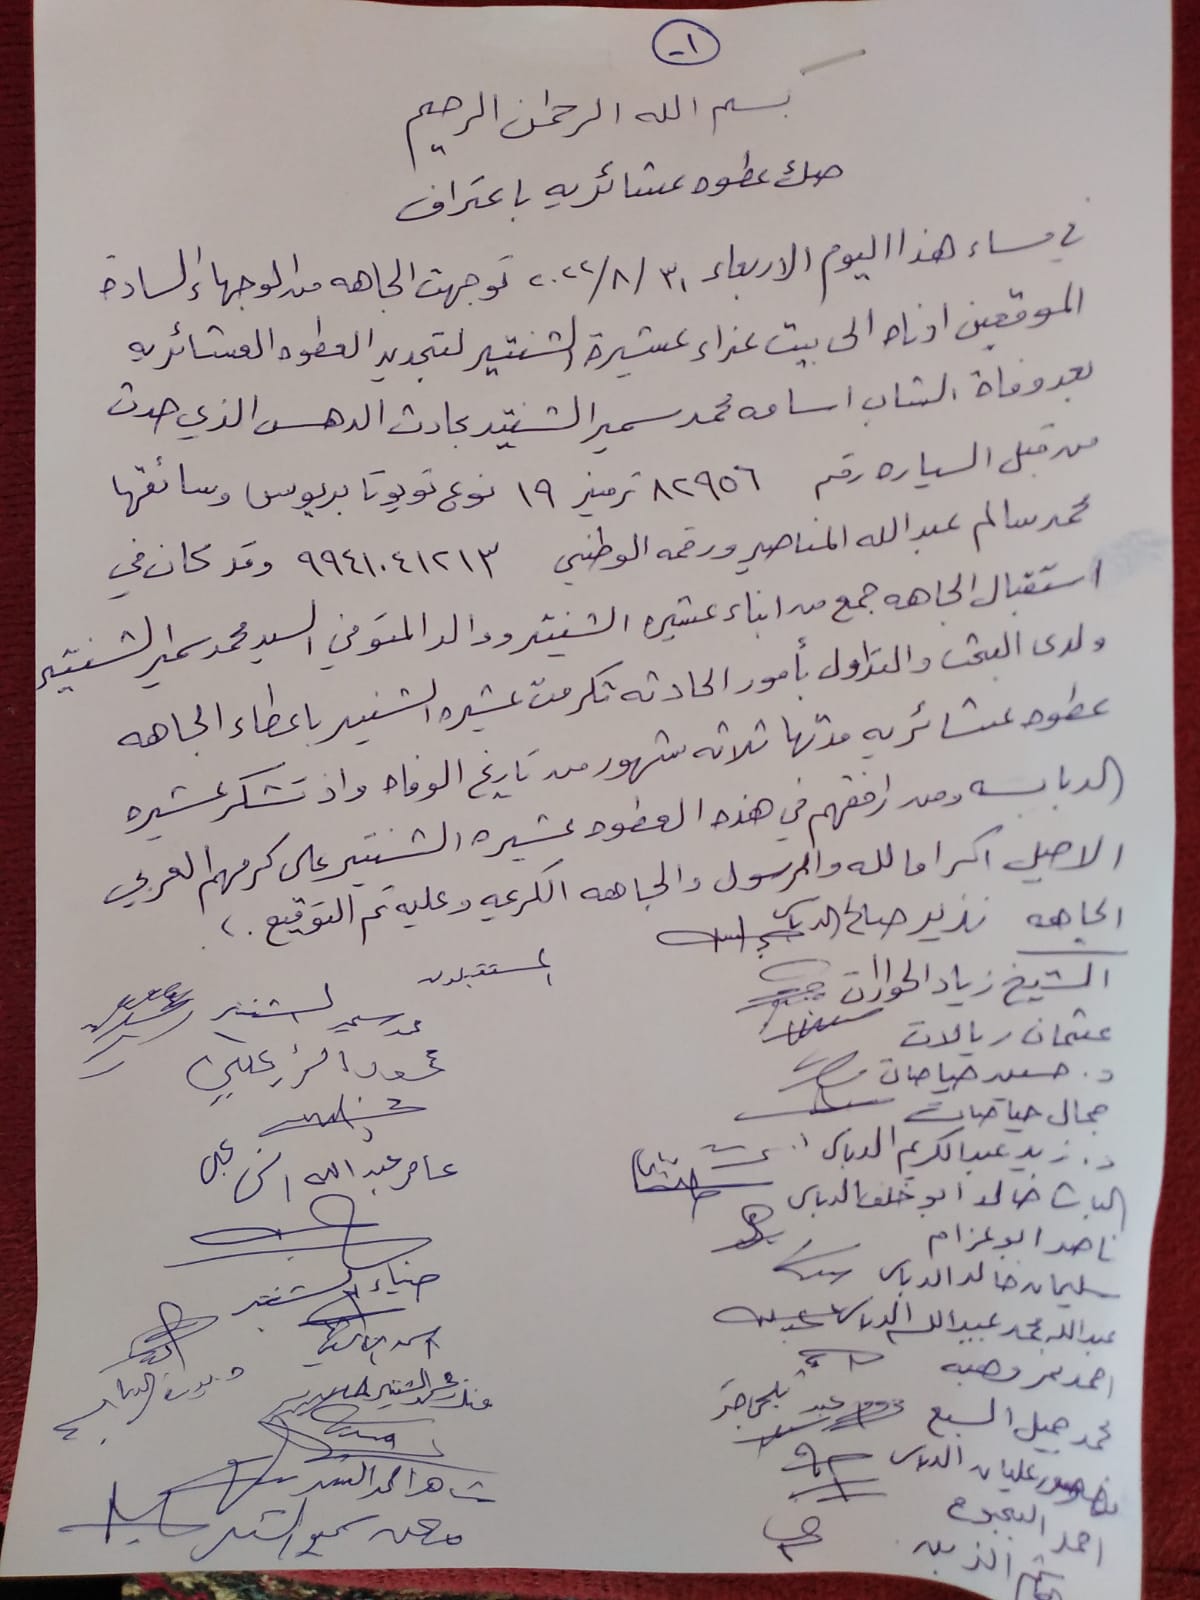 -١
بسم الله الرحمن الرحيم
صك عطوه عشائريه باعتراف
في مساء هذا اليوم الاربعاء ٣١/٨/٢٠٢٢ توجهت الجاهه من الوجهاء السادة
الموقعين ادناه الى بيت عزاء عشيرة الشنتير لتجديد العطوه العشائريه
بعد وفاة الشاب اسامه محمد سمير الشنتير بحادث الدهس الذي حدث
من قبل السياره رقم ٨٢٩٥٦ ترميز ١٩ نوع تويوتا بريوس وسائقها
محمد سالم عبدالله المناصير ورقمه الوطني ٩٩٤١٠٤١٢١٣ وقد كان في
استقبال الجاهه جمع من ابناء عشيره الشنتير ووالد المتوفي السيد محمد سمير الشنتير
ولدى البحث والتداول بأمور الحادثه تكرمت عشيره الشنتير باعطاء الجاهه
عطوه عشائريه مدتها ثلاثه شهور من تاريخ الوفاه واذ تشكر عشيره
الدبابسه ومن رافقهم في هذه العطوه عشيره الشنتير على كرمهم العربي
الاصيل اكراما لله والرسول والجاهه الكريمه وعليه تم التوقيع
الجاهه نذير صالح الدباس
المستقبلون
الشيخ زياد الحوارات
محمد سمير الشنتير
عثمان ريالات
محمود الزعبي
د. حسين حياصات
جمال حياصات
د. زيد عبدالكريم الدباس
عامر عبدالله
الباشا خالد ابو خلف الدباس
ناصر ابو عزام
سليمان خالد الدباس
ضياء الشنتير
عبدالله محمد عبدالله الدباس
احمد نمر وهبه
محمد جميل السبع
منصور عليان الدباس
شاهر احمد الشنتير
احمد
معن سمير الشنتير